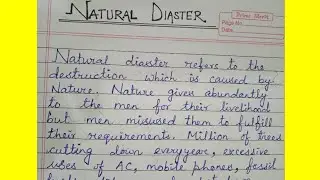 NATURAL DIASTER
Page No.
Date
Natural diaster refers to the
destruction which is caused by
Nature. Nature gives abundantly
to the men for their livelihood
but men misused them to fulfill
their requirements. Million of trees
cutting down everyyear, excessive
uses of AC, mobile phones, fossil